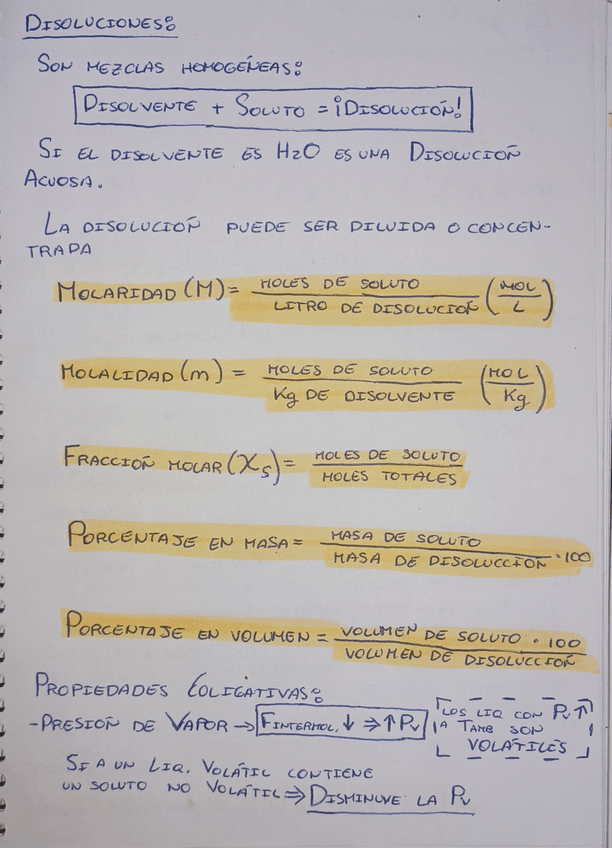 DISOLUCIONES:
SON MEZCLAS HOMOGÉNEAS:
DISOLVENTE + SOLUTO = ¡DISOLUCIÓN!
SI EL DISOLVENTE ES H2O ES UNA DISOLUCIÓN
ACUOSA.
LA DISOLUCIÓN PUEDE SER DILUIDA O CONCEN-
TRADA
MOLARIDAD (M) = MOLES DE SOLUTO / LITRO DE DISOLUCIÓN (MOL / L)
MOLALIDAD (m) = MOLES DE SOLUTO / Kg DE DISOLVENTE (MOL / Kg)
FRACCIÓN MOLAR (Xs) = MOLES DE SOLUTO / MOLES TOTALES
PORCENTAJE EN MASA = MASA DE SOLUTO / MASA DE DISOLUCCIÓN · 100
PORCENTAJE EN VOLUMEN = VOLUMEN DE SOLUTO · 100 / VOLUMEN DE DISOLUCCIÓN
PROPIEDADES COLIGATIVAS:
-PRESIÓN DE VAPOR → FINTERMOL. ↓ ⇒ ↑ Pv
LOS LIQ CON Pv ↑
LA TAMB SON
VOLÁTILES
SI A UN LIQ. VOLÁTIL CONTIENE
UN SOLUTO NO VOLÁTIL ⇒ DISMINUVE LA Pv